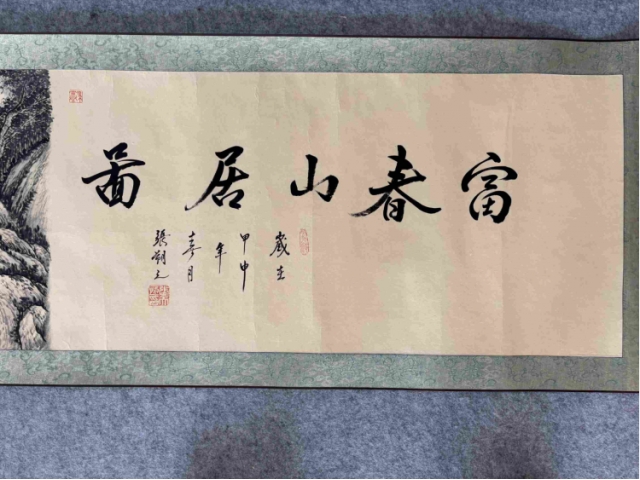 富春山居啚
歲在
甲申
年
春月
張朔之